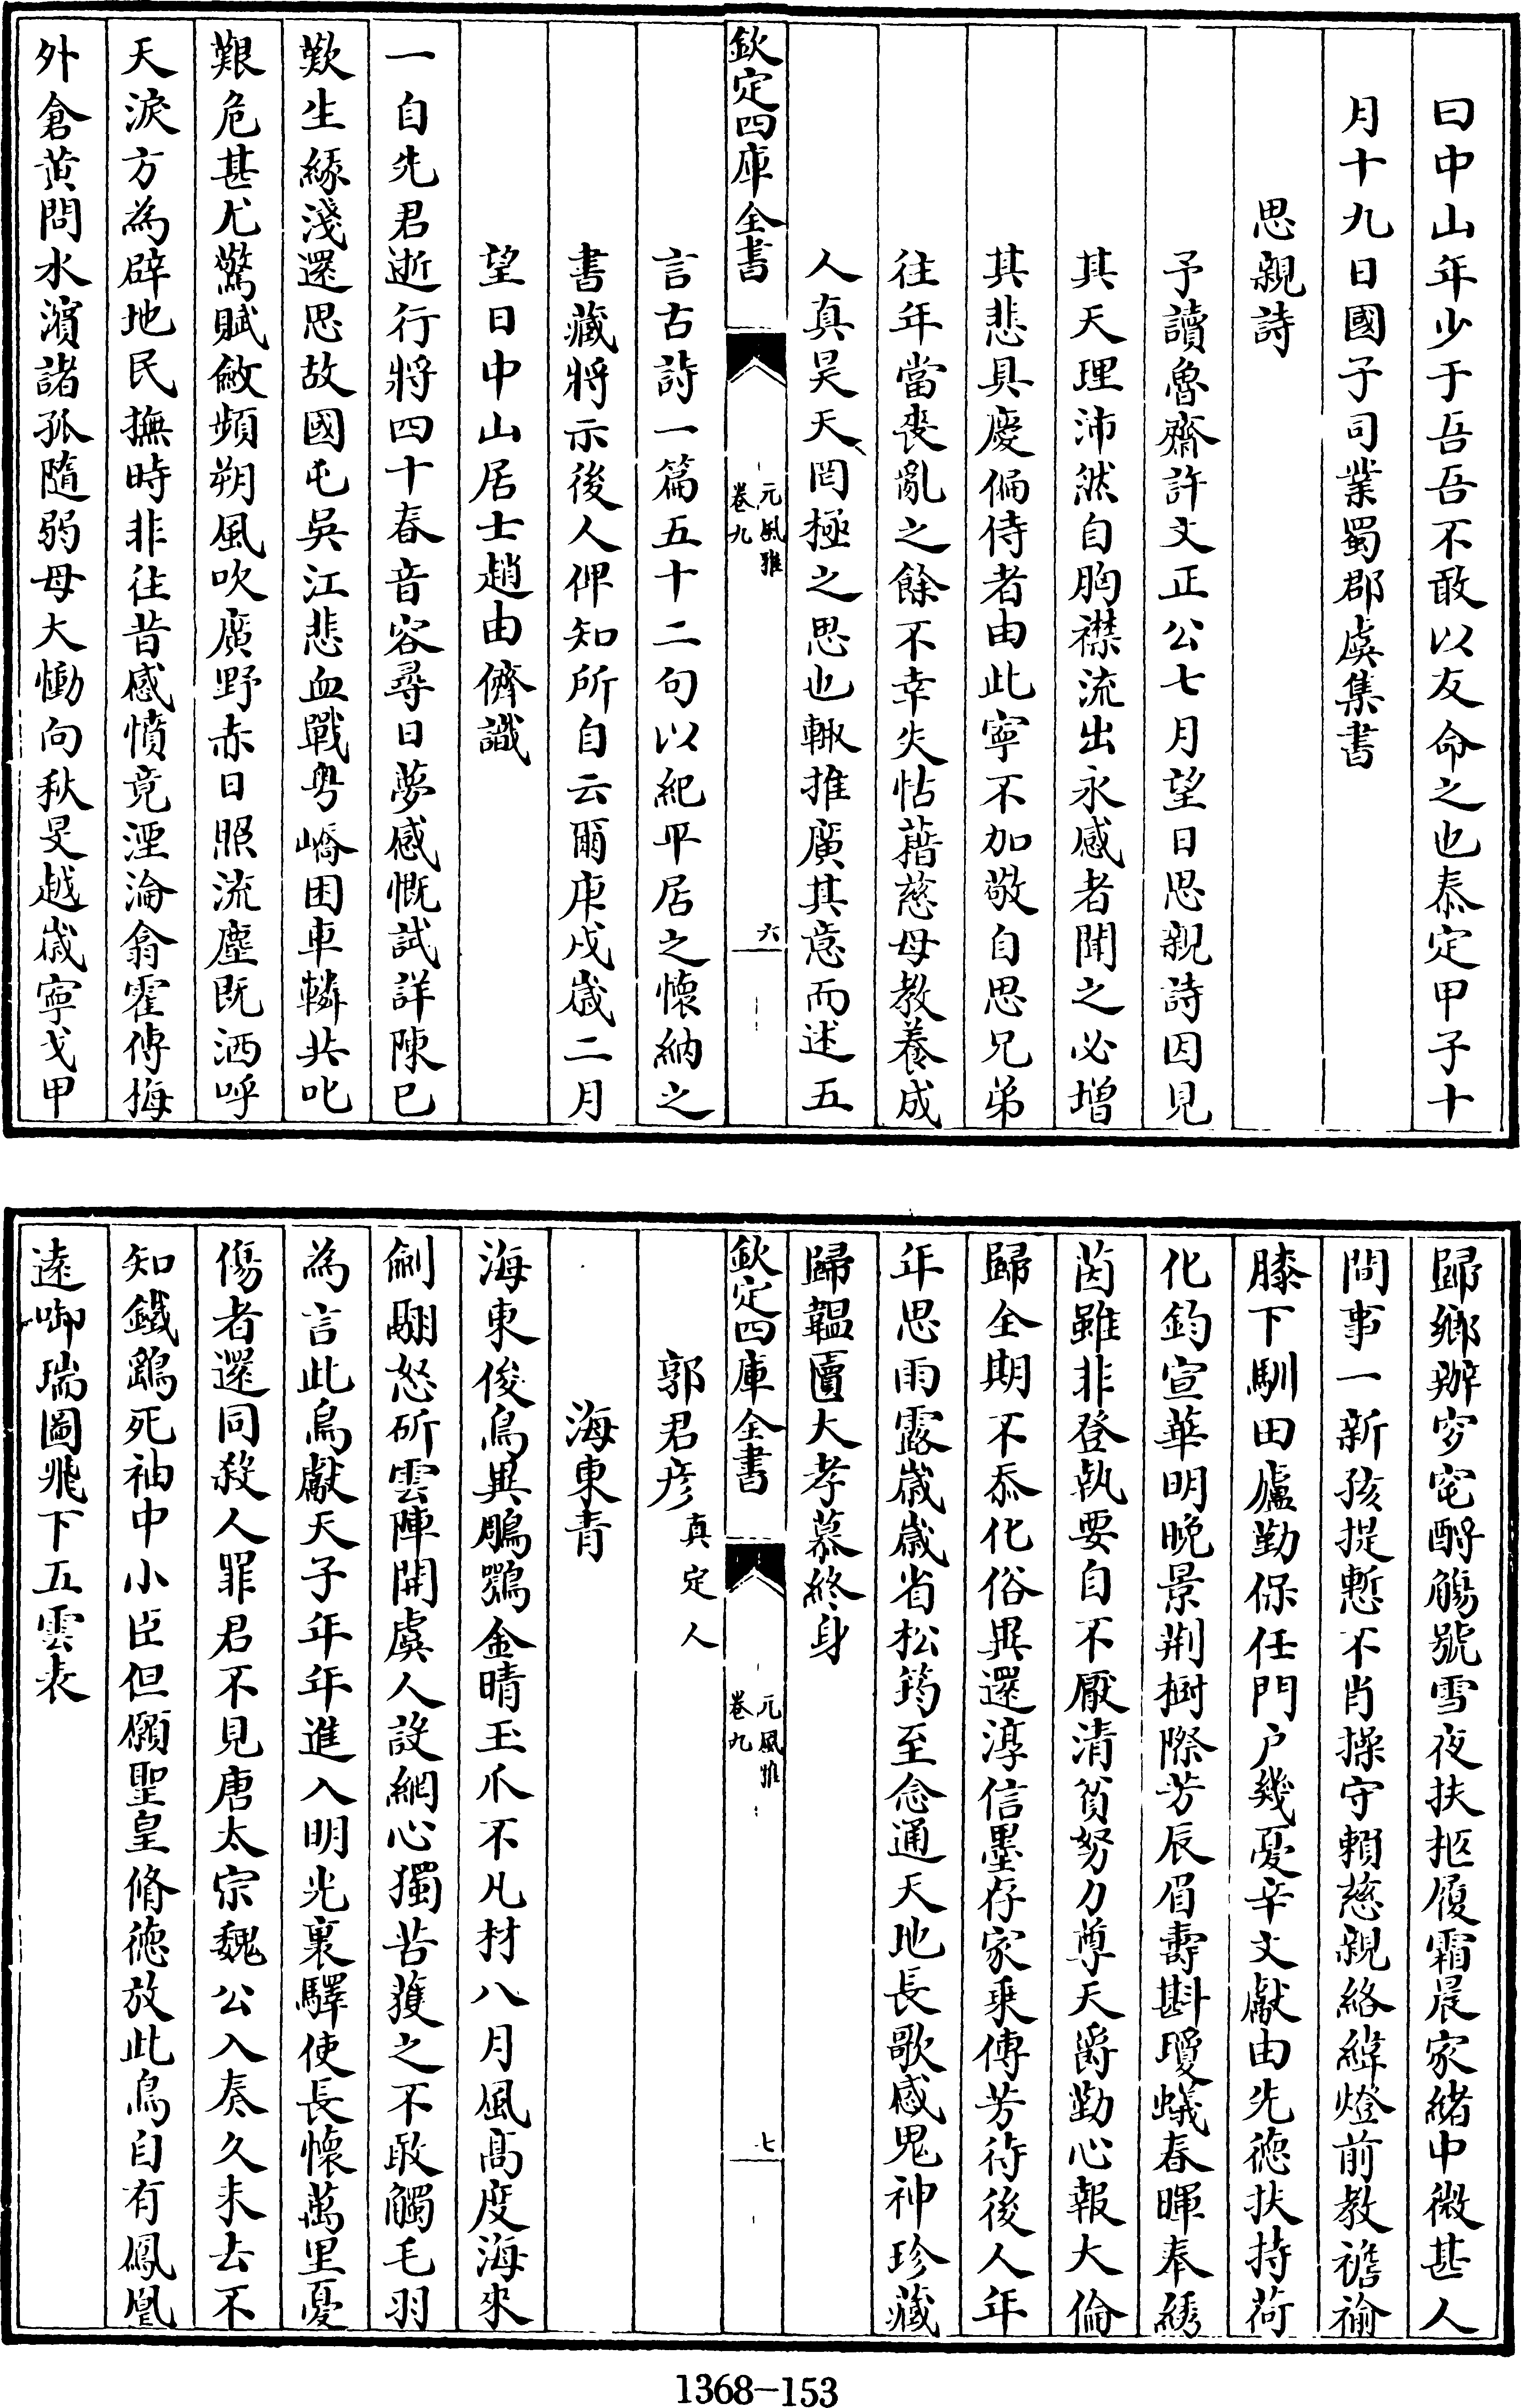 曰中山年少于吾吾不敢以友命之也泰定甲子十
月十九日國子司業蜀郡虞集書
思親詩
予讀魯齋許文正公七月望日思親詩因見
其天理沛然自胸襟流出永感者聞之必增
其悲具慶偏侍者由此寧不加敬自思兄弟
往年當喪亂之餘不幸失怙藉慈母教養成
人真昊天罔極之思也輙推廣其意而述五
欽定四庫全書
元風雅
卷九
六
言古詩一篇五十二句以紀平居之懷納之
書藏將示後人俾知所自云爾庚戌歲二月
望日中山居士趙由儕識
一自先君逝行將四十春音容尋日夢感慨試詳陳巳
歎生緣淺還思故國屯吳江悲血戰粤嶠困車轔共叱
艱危甚尤驚賦斂頻朔風吹廣野赤日照流塵既洒呼
天淚方為辟地民撫時非往昔感憤竟湮淪翕霍傳梅
外倉黄問水濵諸孤隨弱母大慟向秋旻越歲寧戈甲
歸鄉辦穸窀酹觴號雪夜扶柩履霜晨家緒中微甚人
間事一新孩提慙不肖操守賴慈親絡緯燈前教襜褕
膝下馴田廬勤保任門户幾憂辛文獻由先德扶持荷
化鈞宣華明晚景荆樹際芳辰眉壽斟瓊蟻春暉奉綉
茵雖非登執要自不厭清貧努力尊天爵勤心報大倫
歸全期不忝化俗異還淳信墨存家乗傳芳待後人年
年思雨露歲歲省松筠至念通天地長歌感鬼神珍藏
歸韞匵大孝慕終身
欽定四庫全書
元風雅
卷九
七
郭君彦真定人
海東青
海東俊鳥異鵰鶚金睛玉爪不凡材八月風高度海來
劍翮怒斫雲陣開虞人設網心獨苦獲之不敢觸毛羽
為言此鳥獻天子年年進入明光裏驛使長懷萬里憂
傷者還同殺人罪君不見唐太宗魏公入奏久未去不
知鐵鷂死袖中小臣但願聖皇脩德放此鳥自有鳳凰
遠啣瑞圖飛下五雲表
1368-153